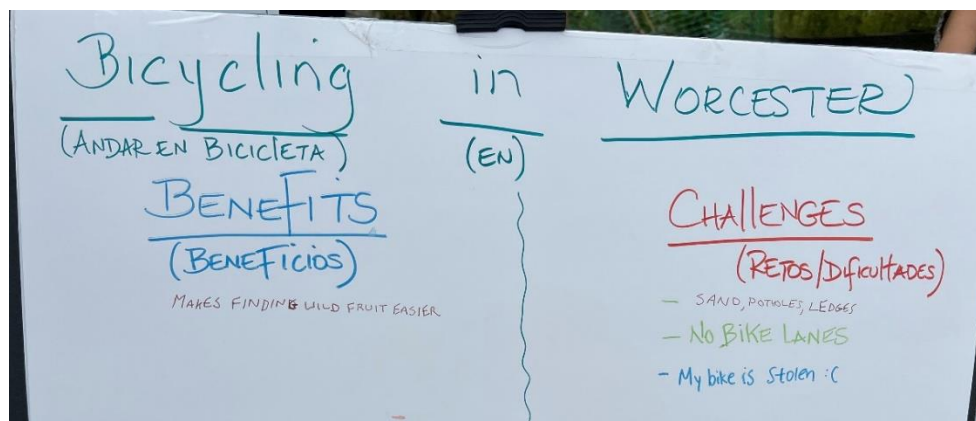 Bicycling in WORCESTER
(ANDAR EN BICICLETA) (EN)
BENEFITS
(BENEFICIOS)
MAKES FINDING WILD FRUIT EASIER
CHALLENGES
(RETOS/DIFICULTADES)
- SAND, POTHOLES, LEDGES
- NO BIKE LANES
- My bike is stolen :C